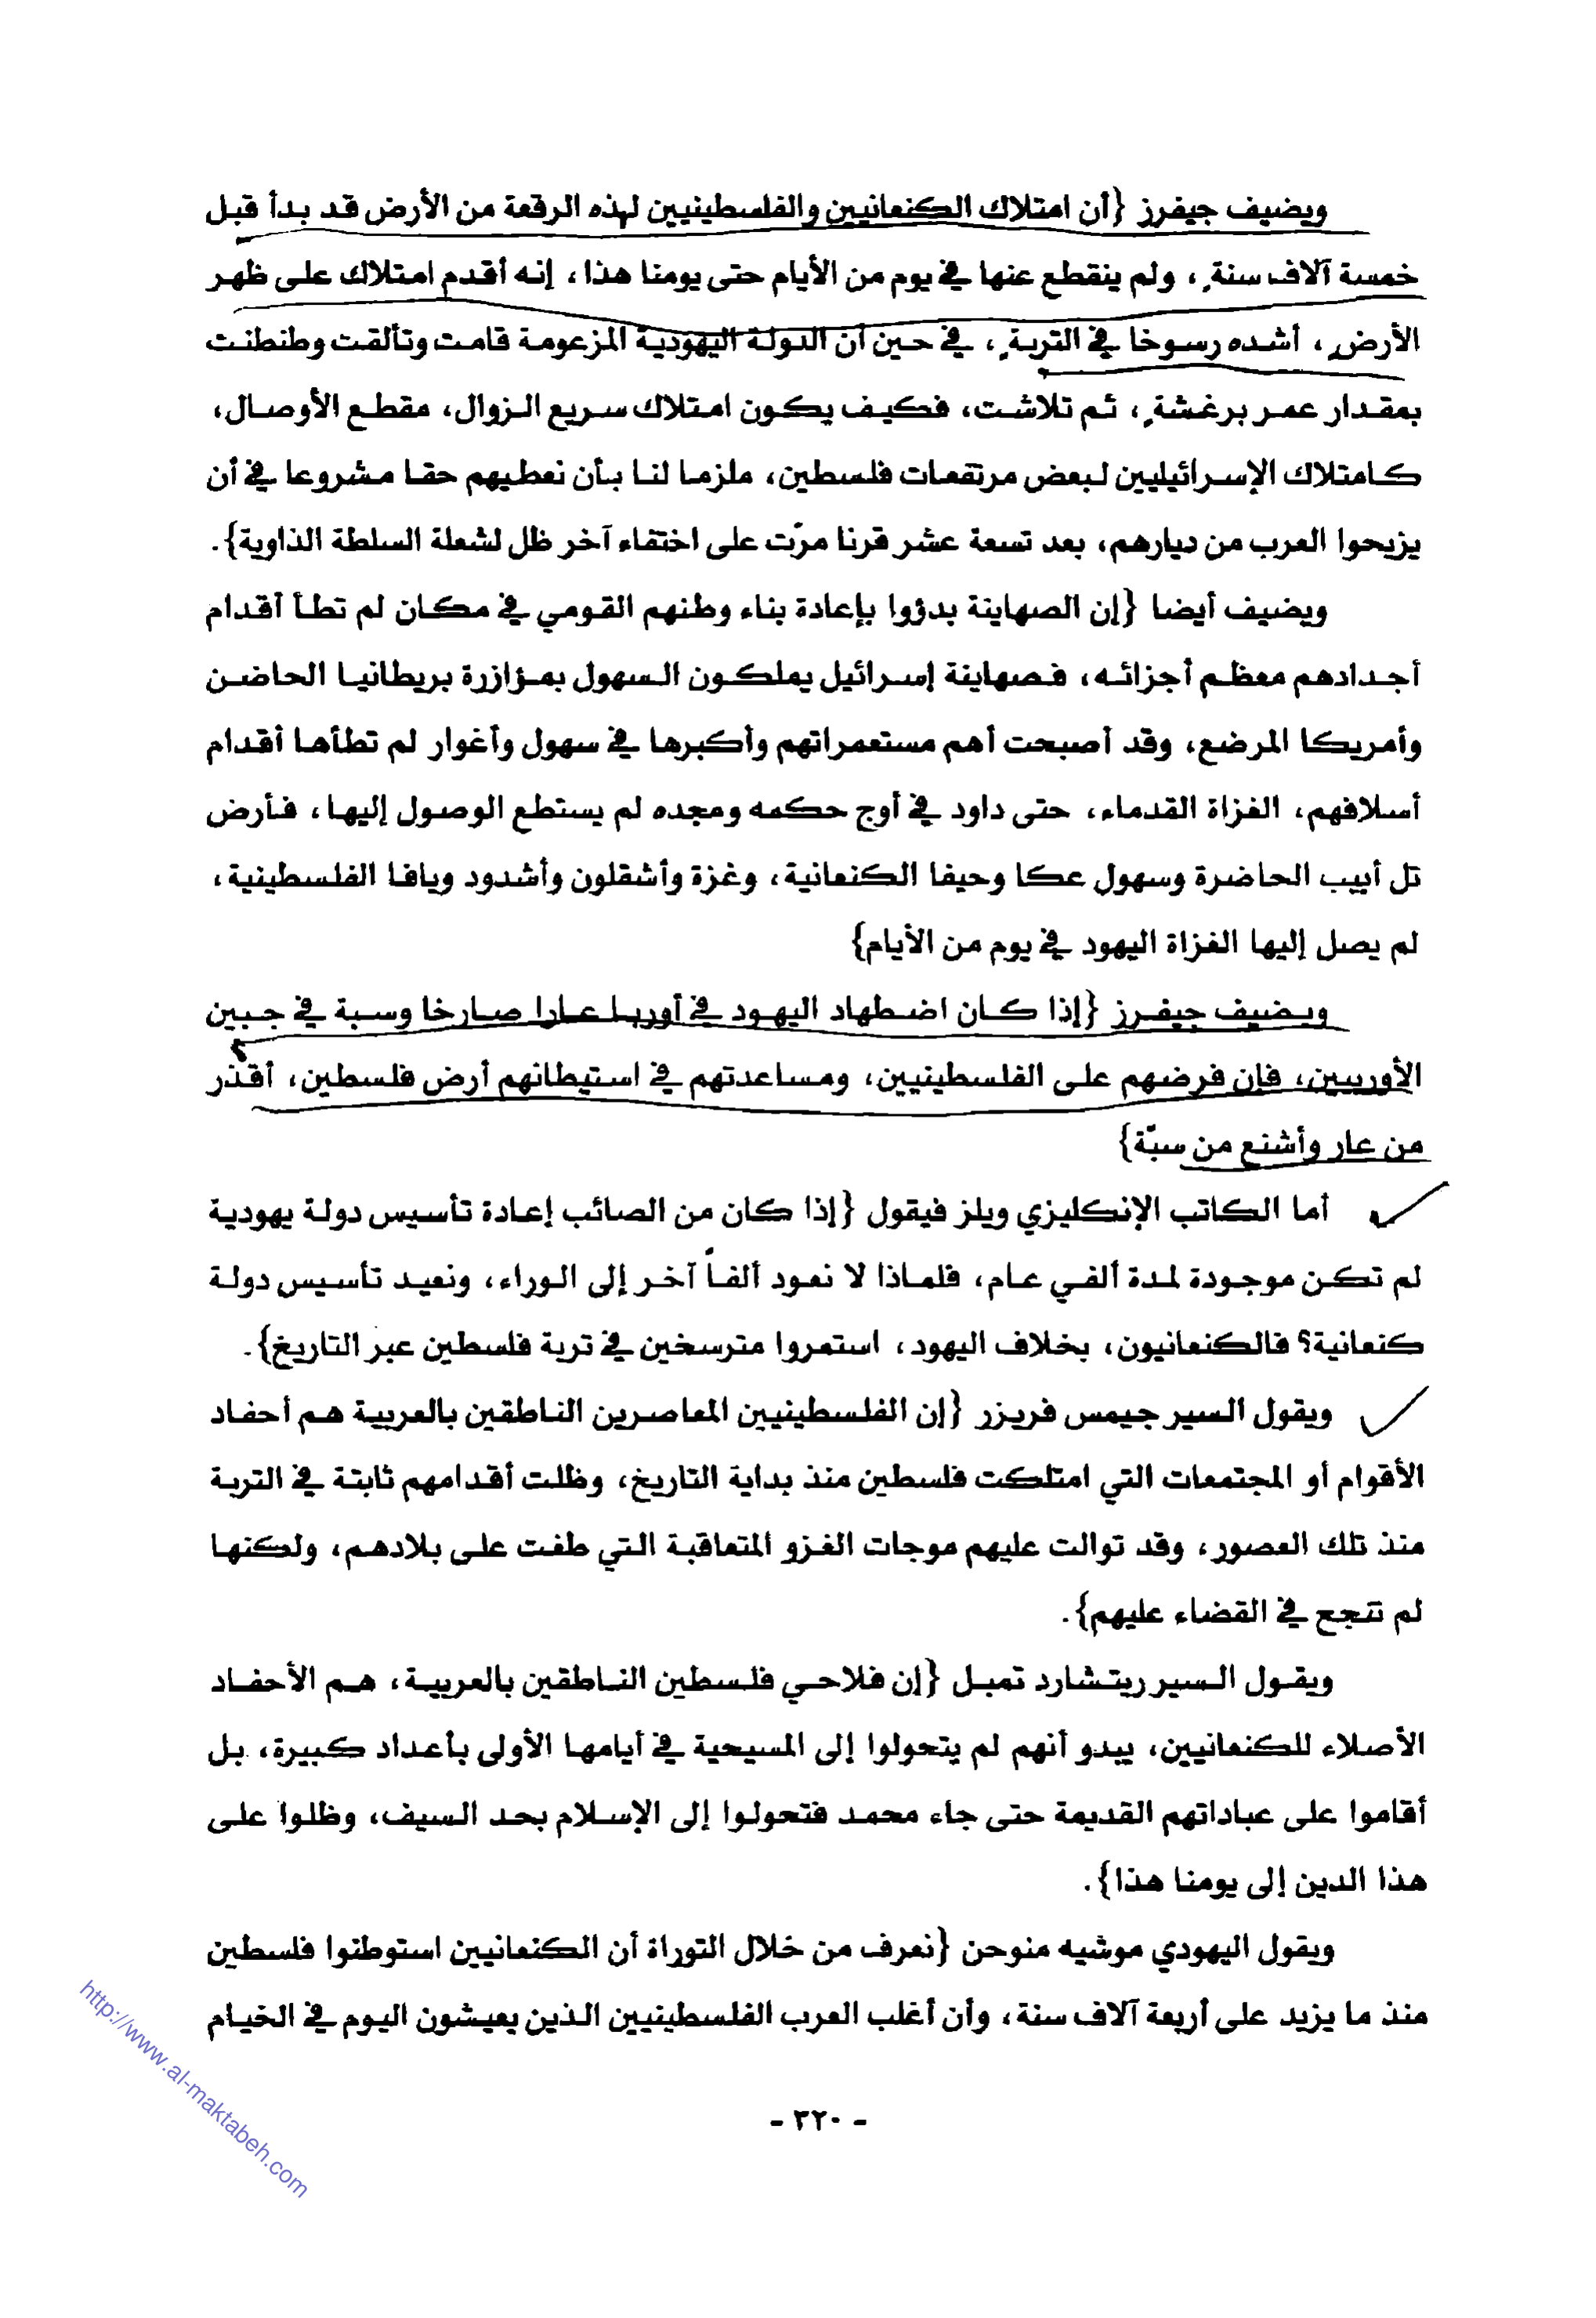 ويضيف جيفرز {أن امتلاك الكنعانيين والفلسطينيين لهذه الرقعة من الأرض قد بدأ قبل
خمسة آلاف سنة، ولم ينقطع عنها في يوم من الأيام حتى يومنا هذا، إنه أقدم امتلاك على ظهر
الأرض، أشده رسوخا في التربة، في حين أن الدولة اليهودية المزعومة قامت وتألقت وطنطنت
بمقدار عمر برغشة، ثم تلاشت، فكيف يكون امتلاك سريع الزوال، مقطع الأوصال،
كامتلاك الإسرائيليين لبعض مرتفعات فلسطين، ملزما لنا بأن نعطيهم حقا مشروعا في أن
يزيحوا العرب من ديارهم، بعد تسعة عشر قرنا مرّت على اختفاء آخر ظل لشعلة السلطة الذاوية}.
ويضيف أيضا {إن الصهاينة بدؤوا بإعادة بناء وطنهم القومي في مكان لم تطأ أقدام
أجدادهم معظم أجزائه، فصهاينة إسرائيل يملكون السهول بمؤازرة بريطانيا الحاضن
وأمريكا المرضع، وقد أصبحت أهم مستعمراتهم وأكبرها في سهول وأغوار لم تطأها أقدام
أسلافهم، الغزاة القدماء، حتى داود في أوج حكمه ومجده لم يستطع الوصول إليها، فأرض
تل أبيب الحاضرة وسهول عكا وحيفا الكنعانية، وغزة وأشقلون وأشدود ويافا الفلسطينية،
لم يصل إليها الغزاة اليهود في يوم من الأيام}
ويضيف جيفرز {إذا كان اضطهاد اليهود في أوربا عارا صارخا وسبة في جبين
الأوربيين، فإن فرضهم على الفلسطينيين، ومساعدتهم في استيطانهم أرض فلسطين، أقذر
من عار وأشنع من سبّة}
أما الكاتب الإنكليزي ويلز فيقول {إذا كان من الصائب إعادة تأسيس دولة يهودية
لم تكن موجودة لمدة ألفي عام، فلماذا لا نعود ألفاً آخر إلى الوراء، ونعيد تأسيس دولة
كنعانية؟ فالكنعانيون، بخلاف اليهود، استمروا مترسخين في تربة فلسطين عبر التاريخ}.
ويقول السير جيمس فريزر {إن الفلسطينيين المعاصرين الناطقين بالعربية هم أحفاد
الأقوام أو المجتمعات التي امتلكت فلسطين منذ بداية التاريخ، وظلت أقدامهم ثابتة في التربة
منذ تلك العصور، وقد توالت عليهم موجات الغزو المتعاقبة التي طغت على بلادهم، ولكنها
لم تنجح في القضاء عليهم}.
ويقول السير ريتشارد تمبل {إن فلاحي فلسطين الناطقين بالعربية، هم الأحفاد
الأصلاء للكنعانيين، يبدو أنهم لم يتحولوا إلى المسيحية في أيامها الأولى بأعداد كبيرة، بل
أقاموا على عباداتهم القديمة حتى جاء محمد فتحولوا إلى الإسلام بحد السيف، وظلوا على
هذا الدين إلى يومنا هذا}.
ويقول اليهودي موشيه منوحن {نعرف من خلال التوراة أن الكنعانيين استوطنوا فلسطين
منذ ما يزيد على أربعة آلاف سنة، وأن أغلب العرب الفلسطينيين الذين يعيشون اليوم في الخيام
- ٣٢٠ -
http://www.al-maktabeh.com